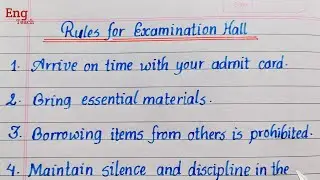 Eng
Teach
Rules for Examination Hall
1. Arrive on time with your admit card.
2. Bring essential materials.
3. Borrowing items from others is prohibited.
4. Maintain silence and discipline in the